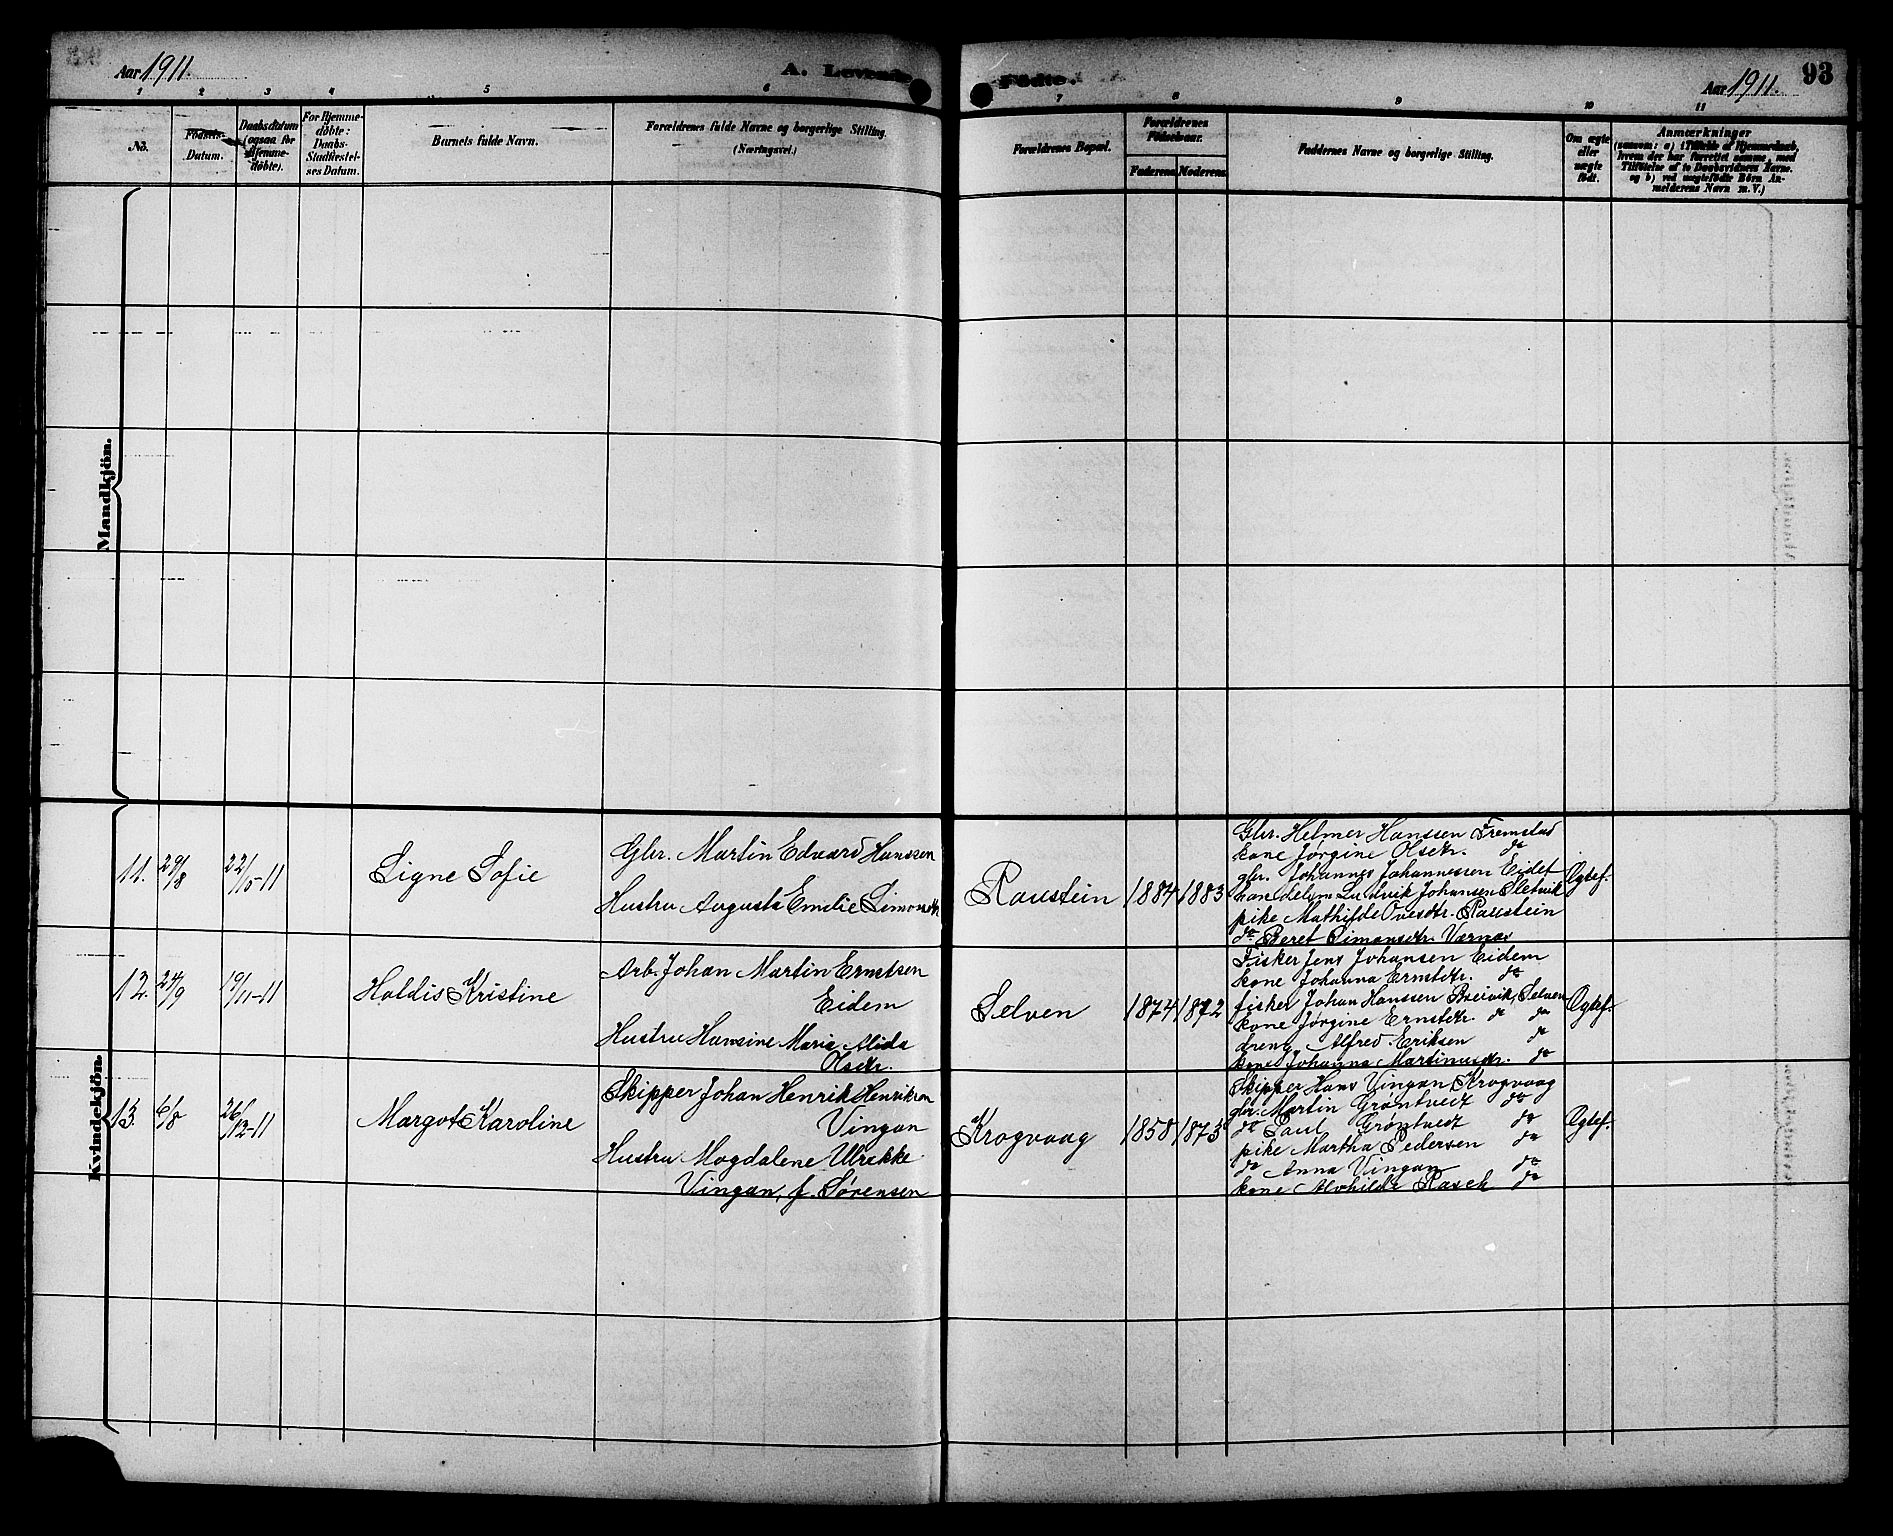 Aar 1911.
A. Levende
Fødte.
Aar 1911.
93
1 2 3 4 5 6 7 8 9 10 11
No.
Fødsels-
Datum.
Daabsdatum
(ogsaa for
Hjemme-
døbte).
For Hjemme-
døbte:
Daabs-
Stadfæstel-
ses Datum.
Barnets fulde Navn.
Forældrenes fulde Navne og borgerlige Stilling.
(Næringsvei.)
Forældrenes Bopæl.
Forældrenes
Fødselsaar.
Faderens
Moderens
Faddernes Navne og borgerlige Stilling.
Om ægte
eller
uægte
født.
Anmærkninger
(saasom: a) i Tilfælde af Hjemmedaab,
hvem der har forrettet samme, med
Tilføielse af to Daabsvidners Navne.
og b) ved uægtefødte Børn An-
melderens Navn m. V.)
Mandkjön.
Kvindekjön.
11.
29/8
22/10-11
Signe Sofie
Gbr. Martin Edvard Hanssen
Hustru Augusta Emelie Simonsdtr.
Raustein
1884
1883
Gbr. Helmer Hanssen Fremstad
kone Jørgine Olsdtr. do
gbr. Johannes Johannessen Eidet
handelsm Ludvik Johansen Sletvik
pike Mathilde Ovesdtr. Raustein
do Beret Simonsdtr. Værnes
Ægtef.
12.
24/9
19/11-11
Haldis Kristine
Arb. Johan Martin Ernstsen
Eidem
Hustru Hansine Marie Alida
Olsdtr.
Selven
1874
1872
Fisker Jens Johansen Eidem
kone Johanna Ernstdtr. do
fisker Johan Hanssen Breivik, Selven
kone Jørgine Ernstdtr. do do
dreng Alfred Eriksen do
kone Johanna Martinusdtr. do
Ægtef.
13.
6/8
26/12-11
Margot Karoline
Skipper Johan Henrik Henriksen
Vingan
Hustru Magdalene Ulrekke
Vingan, f. Sørensen
Krogvaag
1858
1873
Skipper Hans Vingan, Krogvaag
gbr. Martin Grøntvedt do
do Paul Grøntvedt do
pike Martha Pedersen do
do Anna Vingan do
kone Alvhilde Rasch do
Ægtef.